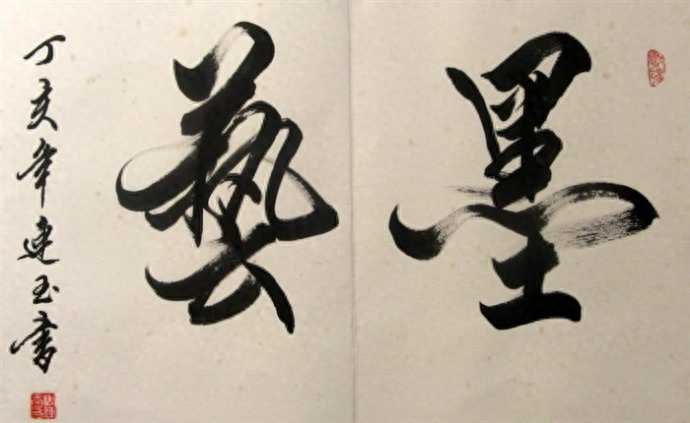 墨藝
丁亥年連玉書